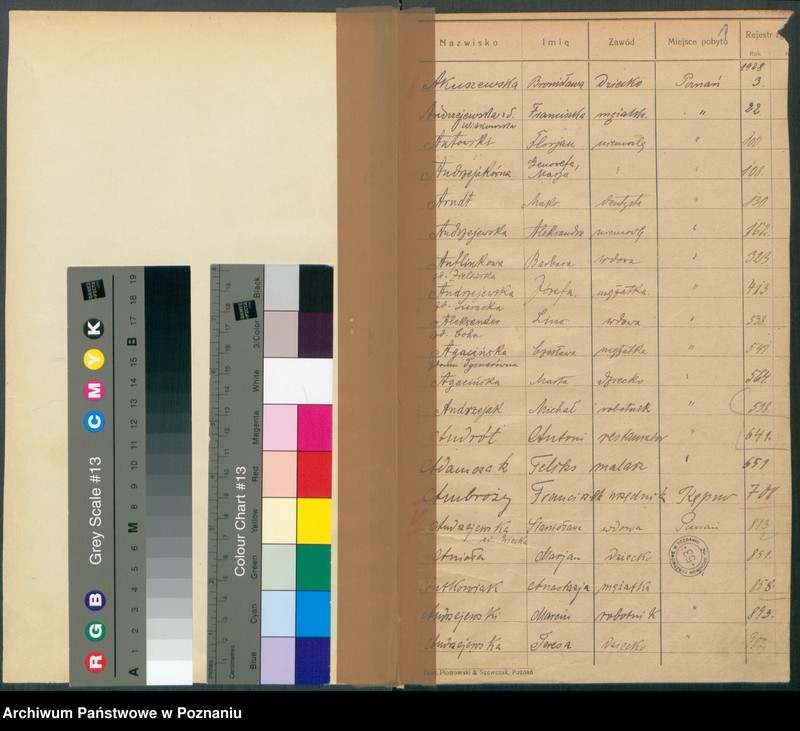 Nazwisko Imię Zawód Miejsce pobytu Rejestr
Rok
1928
Akuszewska Bronisława Dziecko Poznań 3.
Andrzejewska Franciszka mężatk. " 22
Witkowska
Antowski Florjan niemowlę " 100.
Andrzejakówna Genowefa, Marja " 108.
Arndt Maks. dentysta " 131.
Andrzejewska Aleksandra niemowlę " 162.
Antlinkowa Barbara wdowa " 323
Andrzejewska Józefa. mężatka " 413.
Aleksander Lina wdowa " 538.
zd. Cohn
Agacińska Czesława mężatka " 541.
Agacińska Marta Dziecko " 564.
Andrzejak Michał robotnik " 598.
Andrót Antoni restaurator " 641.
Adamczak Feliks malarz " 651
Ambroży Franciszek urzędnik Kępno 708
Andrzejewska Stanisława wdowa Poznań 813
Anioła Marjan Dziecko 851.
Anastazja mężatka " 858.
Andrzejewski Marcin robotnik " 893.
Andrzejewska Teresa Dziecko "
Piotrowski & Szewczak, Poznań
Grey Scale #13
R G B C M Y K
A 1 2 3 4 5 6 M 8 9 10 11 12 13 14 15 B 17 18 19
Colour Chart #13
Blue Cyan Green Yellow Red Magenta White 3/Color Black
Centimetres
Archiwum Państwowe w Poznaniu